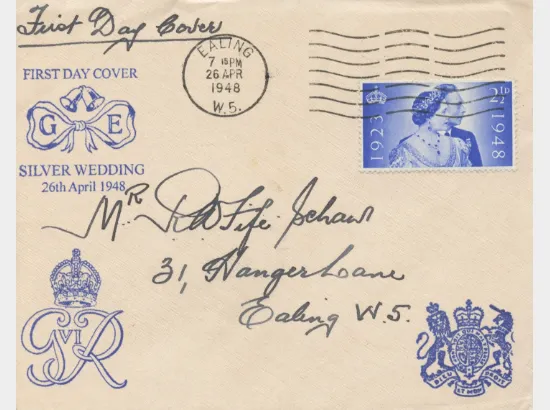 First Day Cover
EALING
7 15 PM
26 APR
1948
W.5.
FIRST DAY COVER
G E
SILVER WEDDING
26th April 1948
1923
2½D
1948
Mr R A Fife Schaw
31, Hanger Lane
Ealing W.5.
G VI R
DIEU ET MON DROIT